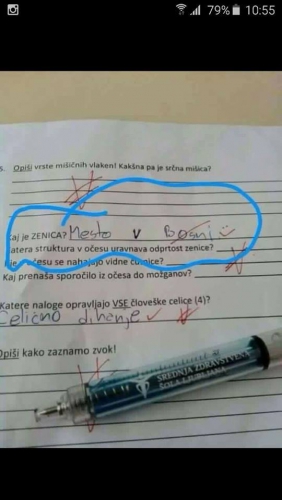 79% 10:55
5. Opiši vrste mišičnih vlaken! Kakšna pa je srčna mišica?
Kaj je ZENICA? Mesto v Bosni
Katera struktura v očesu uravnava odprtost zenice?
Kje v očesu se nahajajo vidne čutnice?
Kaj prenaša sporočilo iz očesa do možganov?
Katere naloge opravljajo VSE človeške celice (4)?
Celično dihanje
Opiši kako zaznamo zvok!
SREDNJA ZDRAVSTVENA
ŠOLA LJUBLJANA